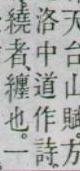 天台山賦方
洛中道作詩
繞者纏也一